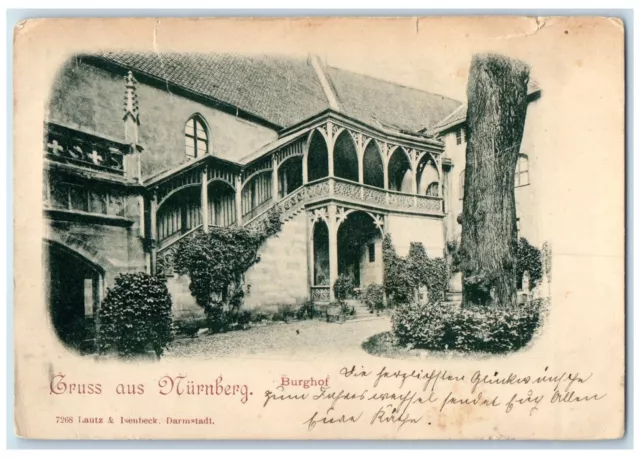 Gruss aus Nürnberg.
Burghof
7268 Lautz & Isenbeck. Darmstadt.
Die herzlichsten Glückwünsche
zum Jahreswechsel sendet Euch Allen
Eure Käthe.